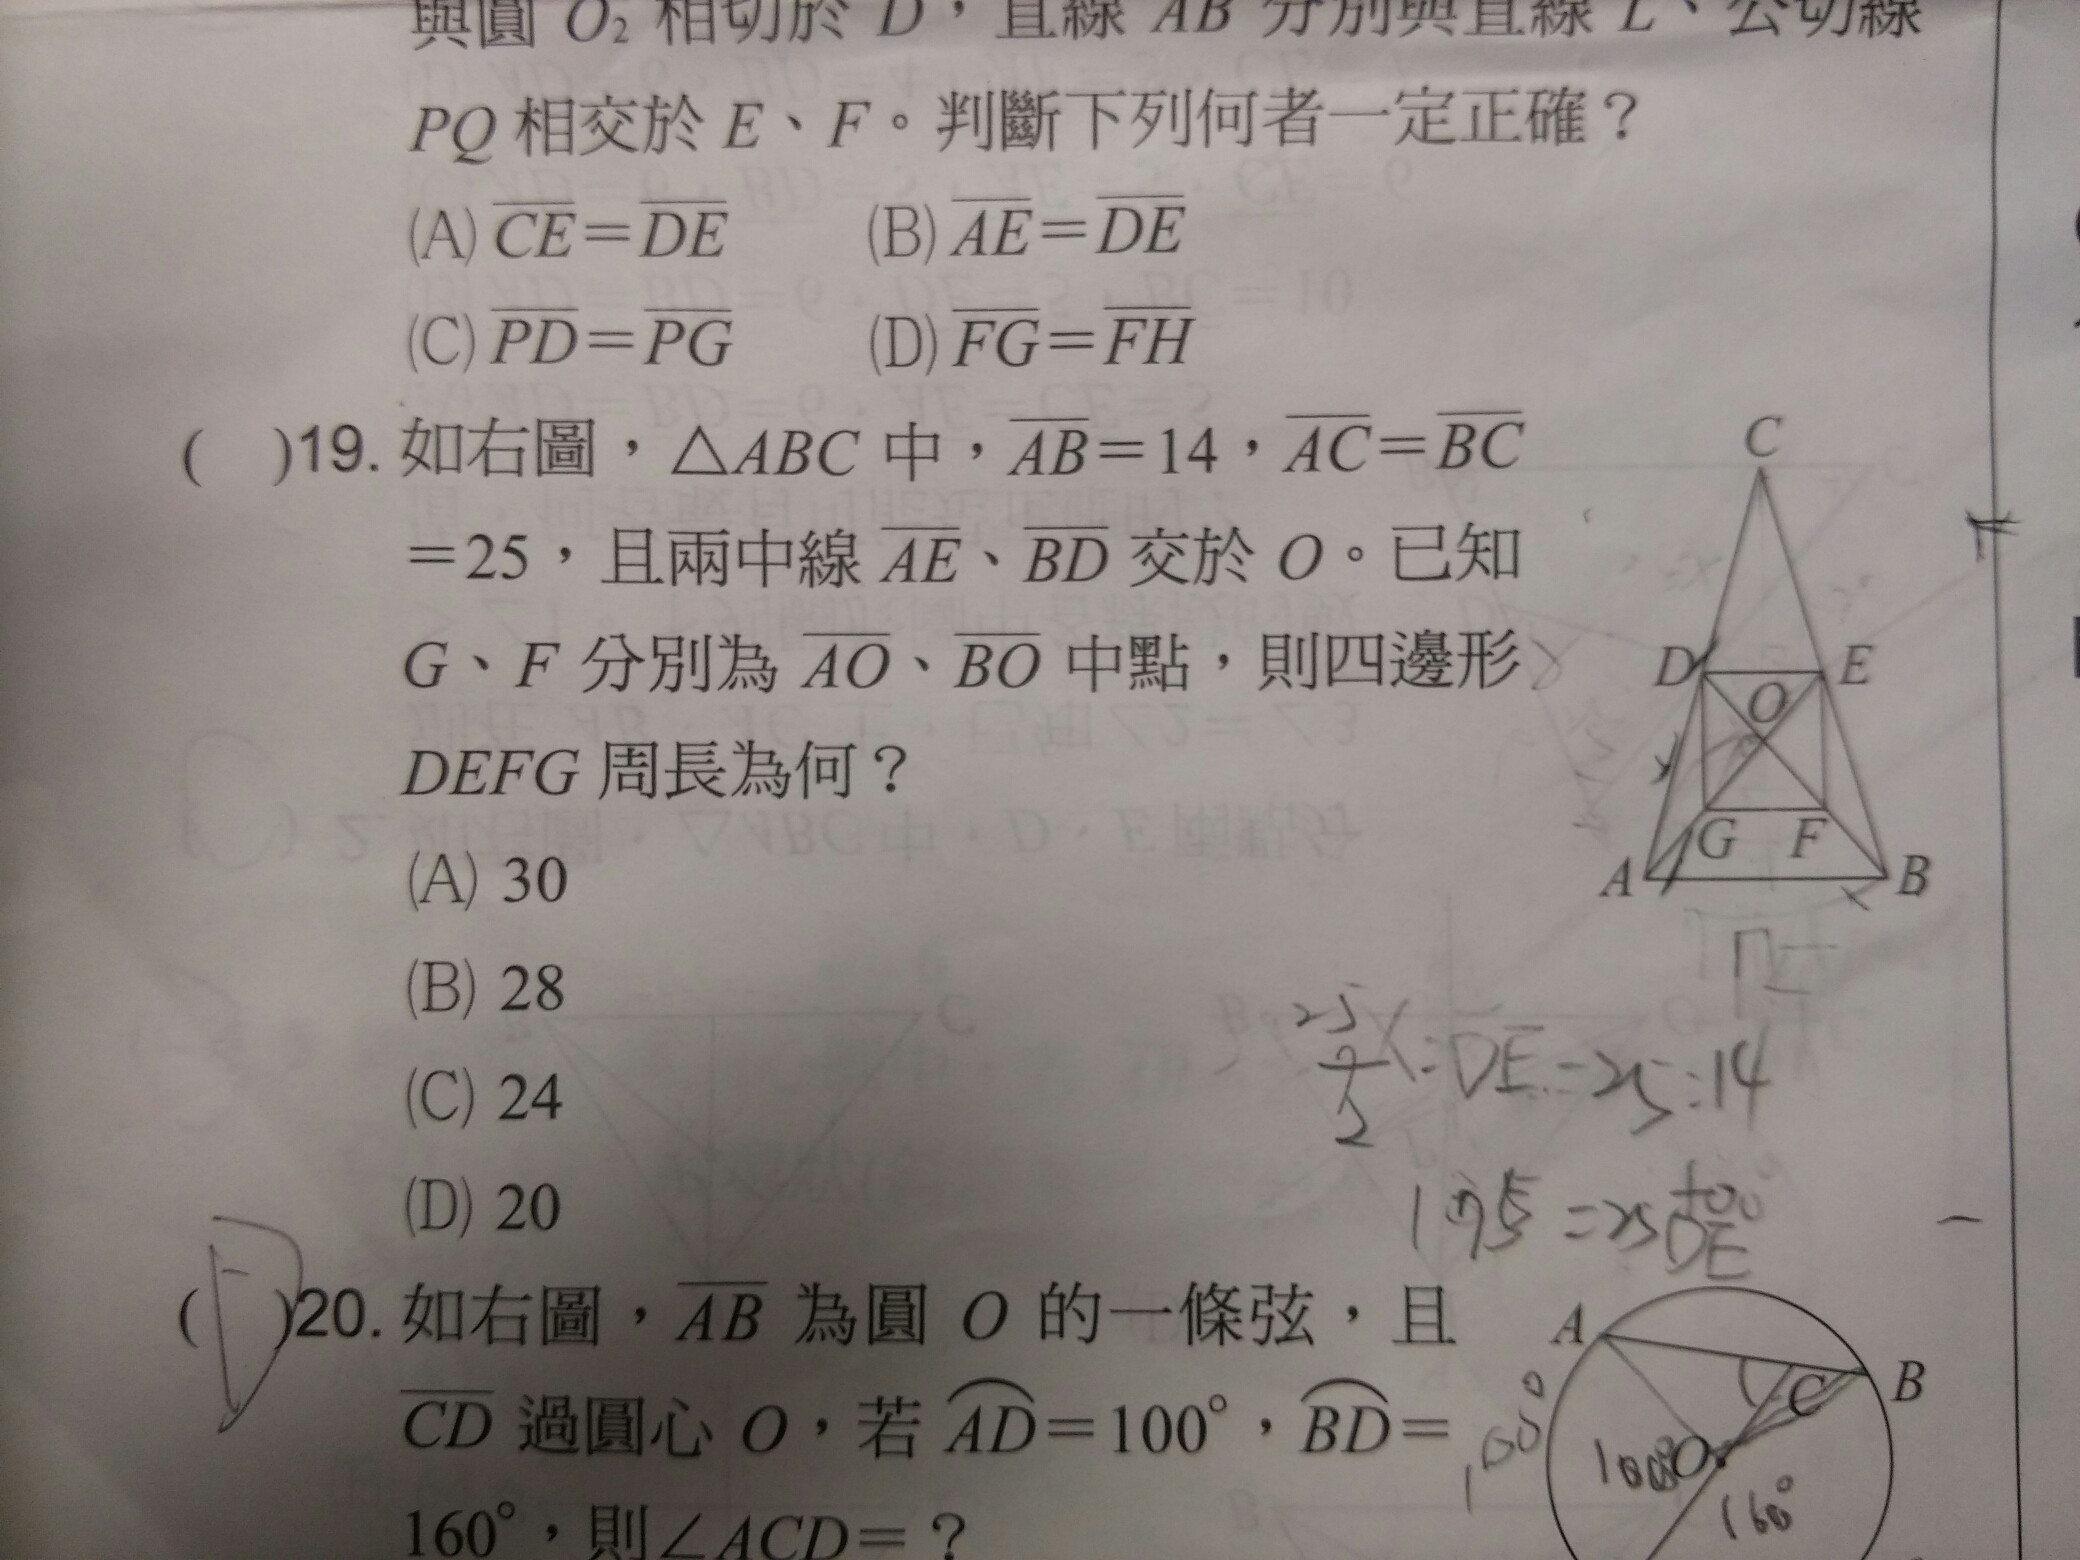 與圓 O₂ 相切於 D，直線 AB 分別與直線 L、公切線
PQ 相交於 E、F。判斷下列何者一定正確？
(A) CE=DE (B) AE=DE
(C) PD=PG (D) FG=FH
( )19. 如右圖，△ABC 中，AB=14，AC=BC
=25，且兩中線 AE、BD 交於 O。已知
G、F 分別為 AO、BO 中點，則四邊形
DEFG 周長為何？
(A) 30
(B) 28
(C) 24
(D) 20
C
D
E
O
G
F
A
B
DE=25:14
=25
DE
( )20. 如右圖，AB 為圓 O 的一條弦，且
CD 過圓心 O，若 AD=100°，BD=
160°，則∠ACD=？
A
B
C
O
100°
160°